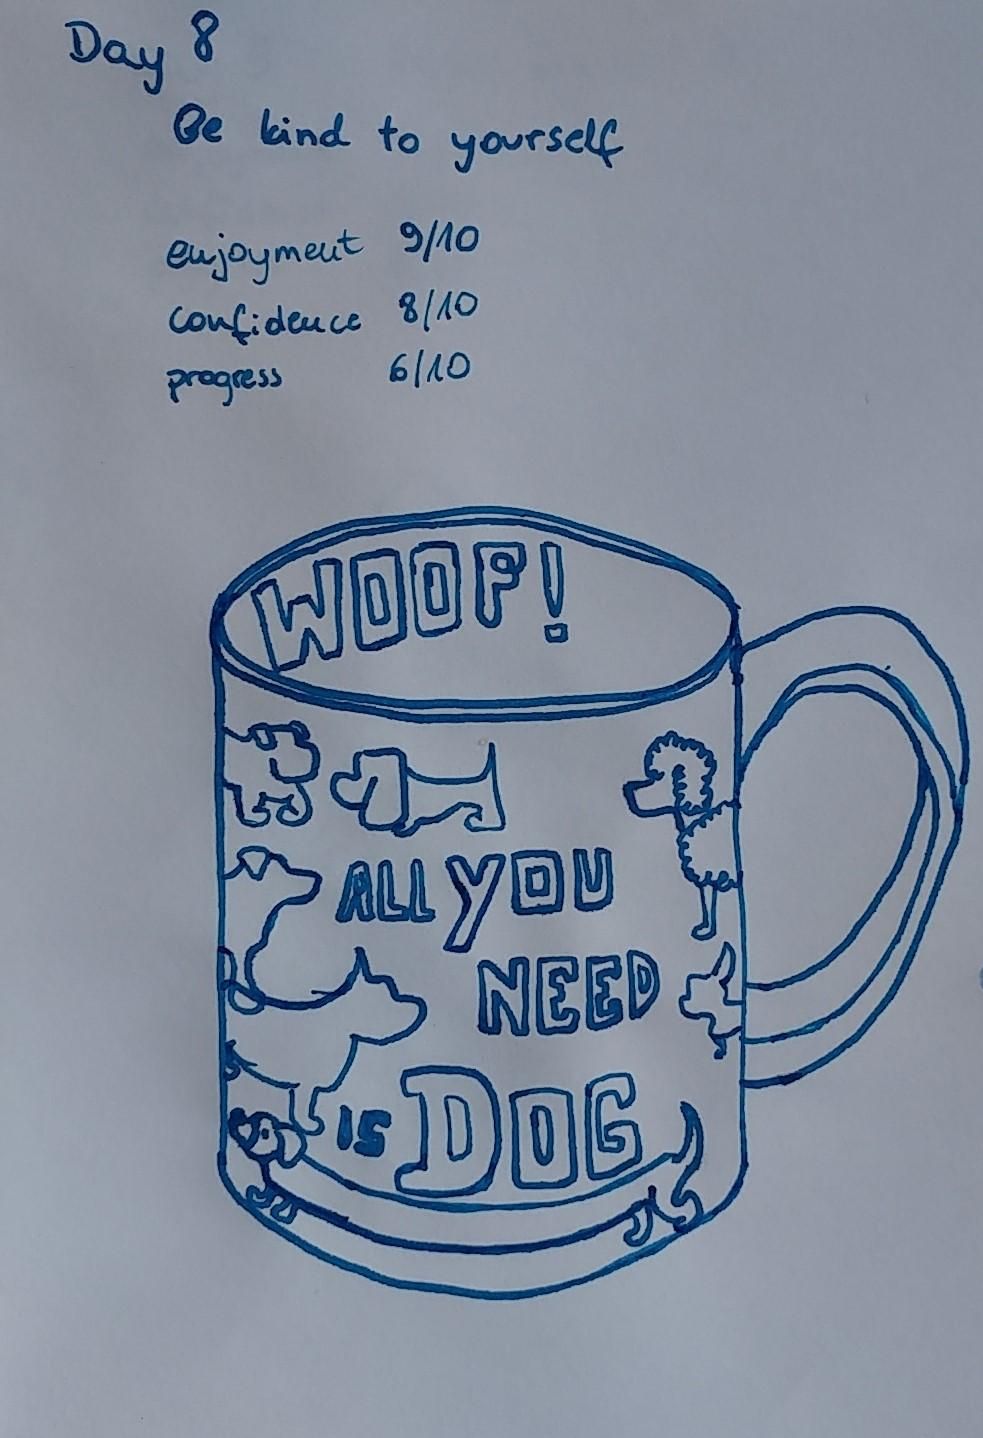 Day 8
Be kind to yourself
enjoyment 9/10
confidence 8/10
progress 6/10
WOOF!
ALL YOU
NEED
IS DOG